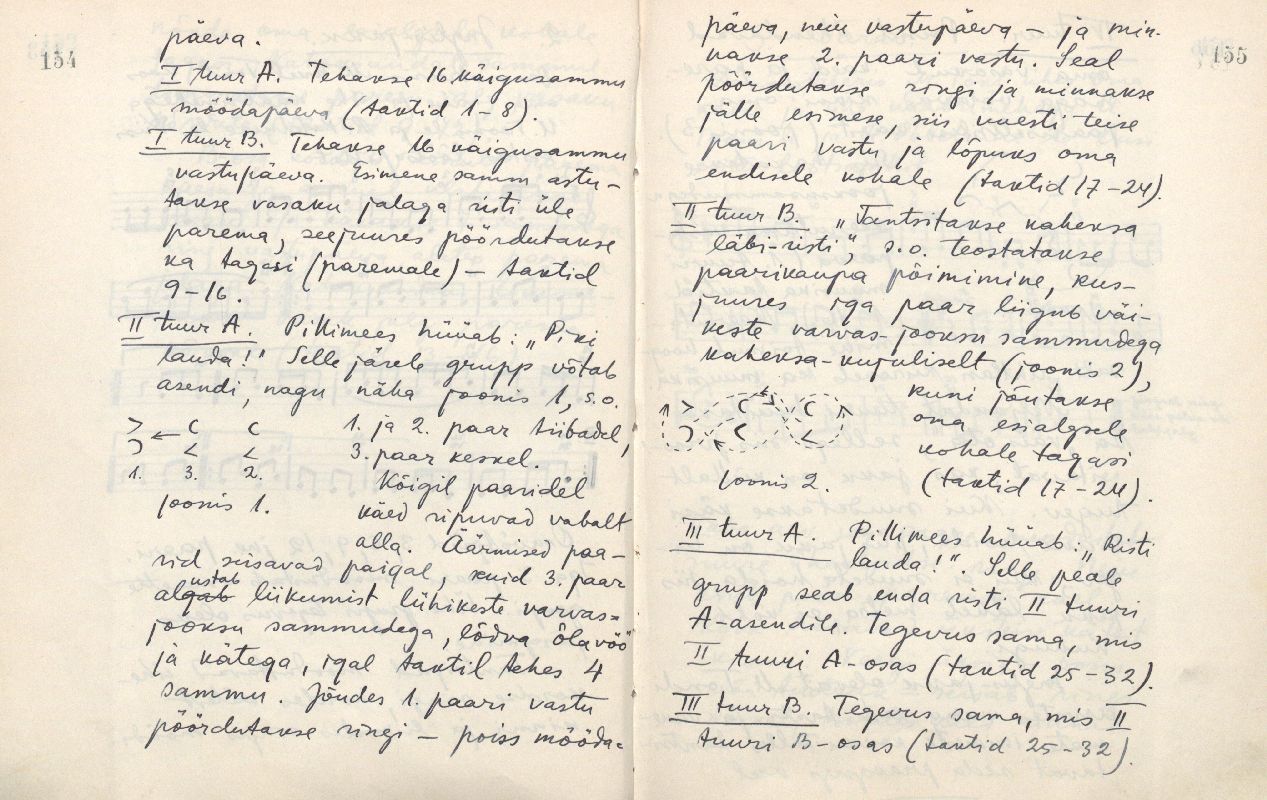 154
päeva.
I tuur A. Tehakse 16 käigusammu
möödapäeva (taktid 1-8).
I tuur B. Tehakse 16 käigusammu
vastupäeva. Esimene samm astu-
takse vasaku jalaga risti üle
parema, seejuures pöördutakse
ka tagasi (paremale) - taktid
9-16.
II tuur A. Pillimees hüüab: „Piki
lauda!" Selle järele grupp võtab
asendi, nagu näha joonis 1, s.o.
1. ja 2. paar tiibadel,
3. paar keskel.
1. 3. 2.
Joonis 1.
Kõigil paaridel
käed ripuvad vabalt
alla. Äärmised paa-
rid seisavad paigal, kuid 3. paar
ustab
algab liikumist lühikeste varvas-
jooksu sammudega, lõdva õlavöö
ja kätega, igal taktil tehes 4
sammu. Jõudes 1. paari vastu
pöördutakse ringi - poiss mööda-
155
päeva, neiu vastupäeva - ja min-
nakse 2. paari vastu. Seal
pöördutakse ringi ja minnakse
jälle esimese, siis uuesti teise
paari vastu ja lõpuks oma
endisele kohale (taktid 17-24).
II tuur B. „Tantsitakse kaheksa
läbi-risti", s.o. teostatakse
paarikaupa põimimine, kus-
juures iga paar liigub väi-
keste varvas-jooksu sammudega
kaheksa-kujuliselt (joonis 2),
kuni jõutakse
oma esialgsele
kohale tagasi
(taktid 17-24).
Joonis 2.
III tuur A. Pillimees hüüab: „Risti
lauda!". Selle peale
grupp seab enda risti II tuuri
A-asendile. Tegevus sama, mis
II tuuri A-osas (taktid 25-32).
III tuur B. Tegevus sama, mis II
tuuri B-osas (taktid 25-32).